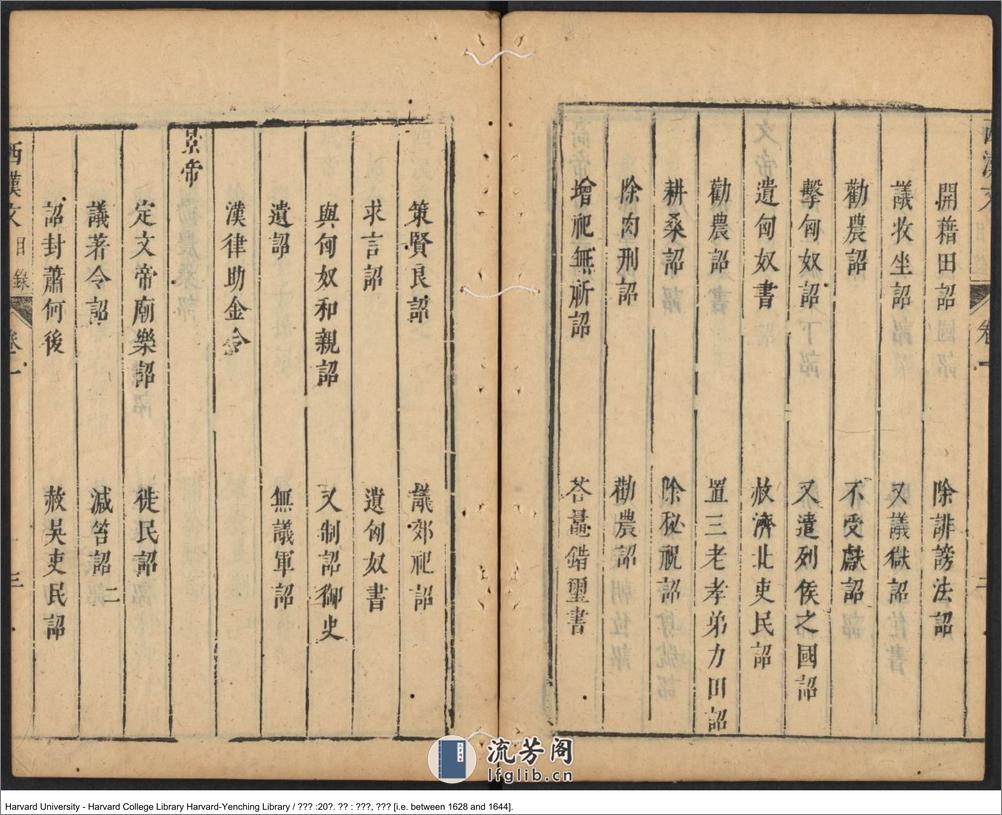 西漢文
卷一
二
開藉田詔
除誹謗法詔
議收坐詔
又議獄詔
勸農詔
不受獻詔
擊匈奴詔
又遣列侯之國詔
遺匈奴書
赦濟北吏民詔
勸農詔
置三老孝弟力田詔
耕桑詔
除秘祝詔
除肉刑詔
勸農詔
增祀無祈詔
答鼂錯璽書
策賢良詔
議郊祀詔
求言詔
遺匈奴書
與匈奴和親詔
又制詔御史
遺詔
無議軍詔
漢律助金令
景帝
定文帝廟樂詔
徙民詔
議著令詔
減笞詔二
詔封蕭何後
赦吳吏民詔
西漢文
目錄
卷一
三
流芳阁
lfglib.cn
Harvard University - Harvard College Library Harvard-Yenching Library / ??? :20?. ?? : ???, ??? [i.e. between 1628 and 1644].